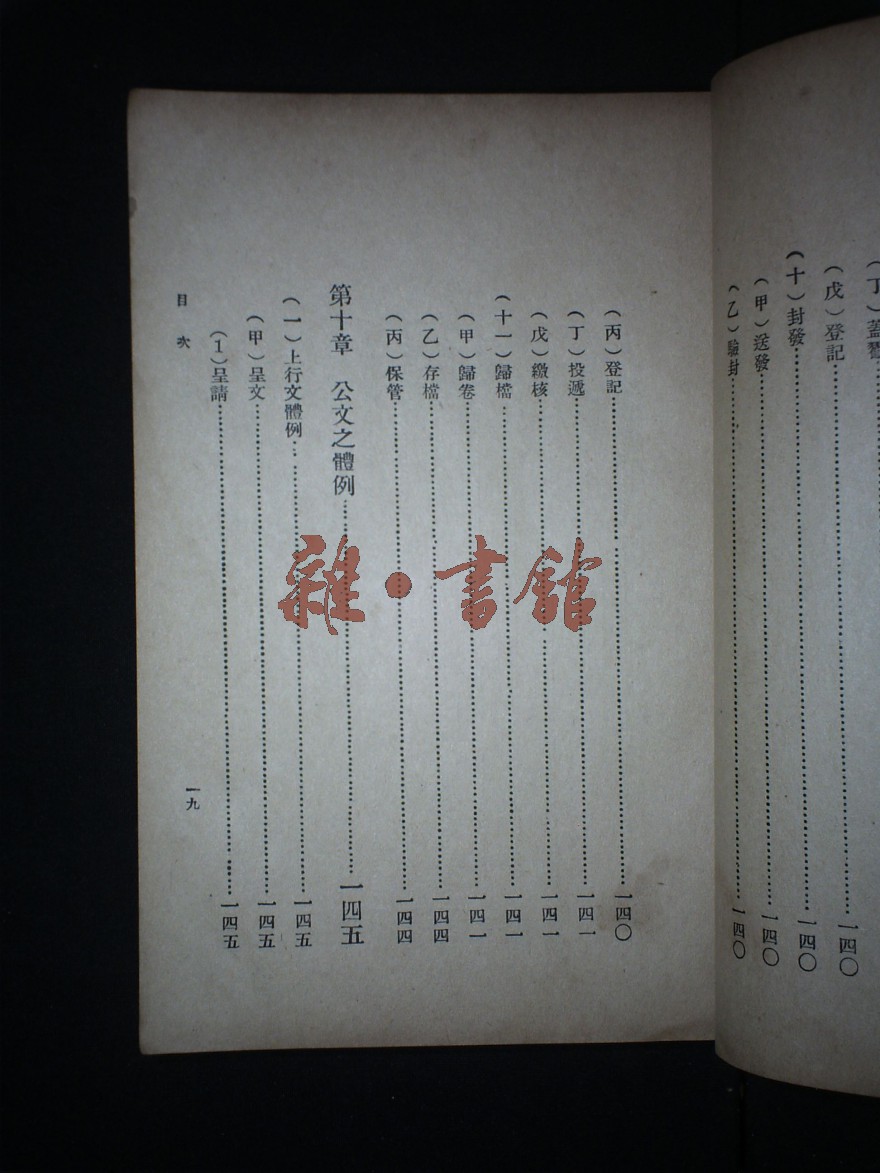 (丁)蓋戳
(戊)登記……一四〇
(十)封發……一四〇
(甲)送發……一四〇
(乙)驗封……一四〇
(丙)登記……一四〇
(丁)投遞……一四一
(戊)繳核……一四一
(十一)歸檔……一四一
(甲)歸卷……一四一
(乙)存檔……一四四
(丙)保管……一四四
第十章 公文之體例……一四五
(一)上行文體例……一四五
(甲)呈文……一四五
(1)呈請……一四五
目次 一九
雜·書館